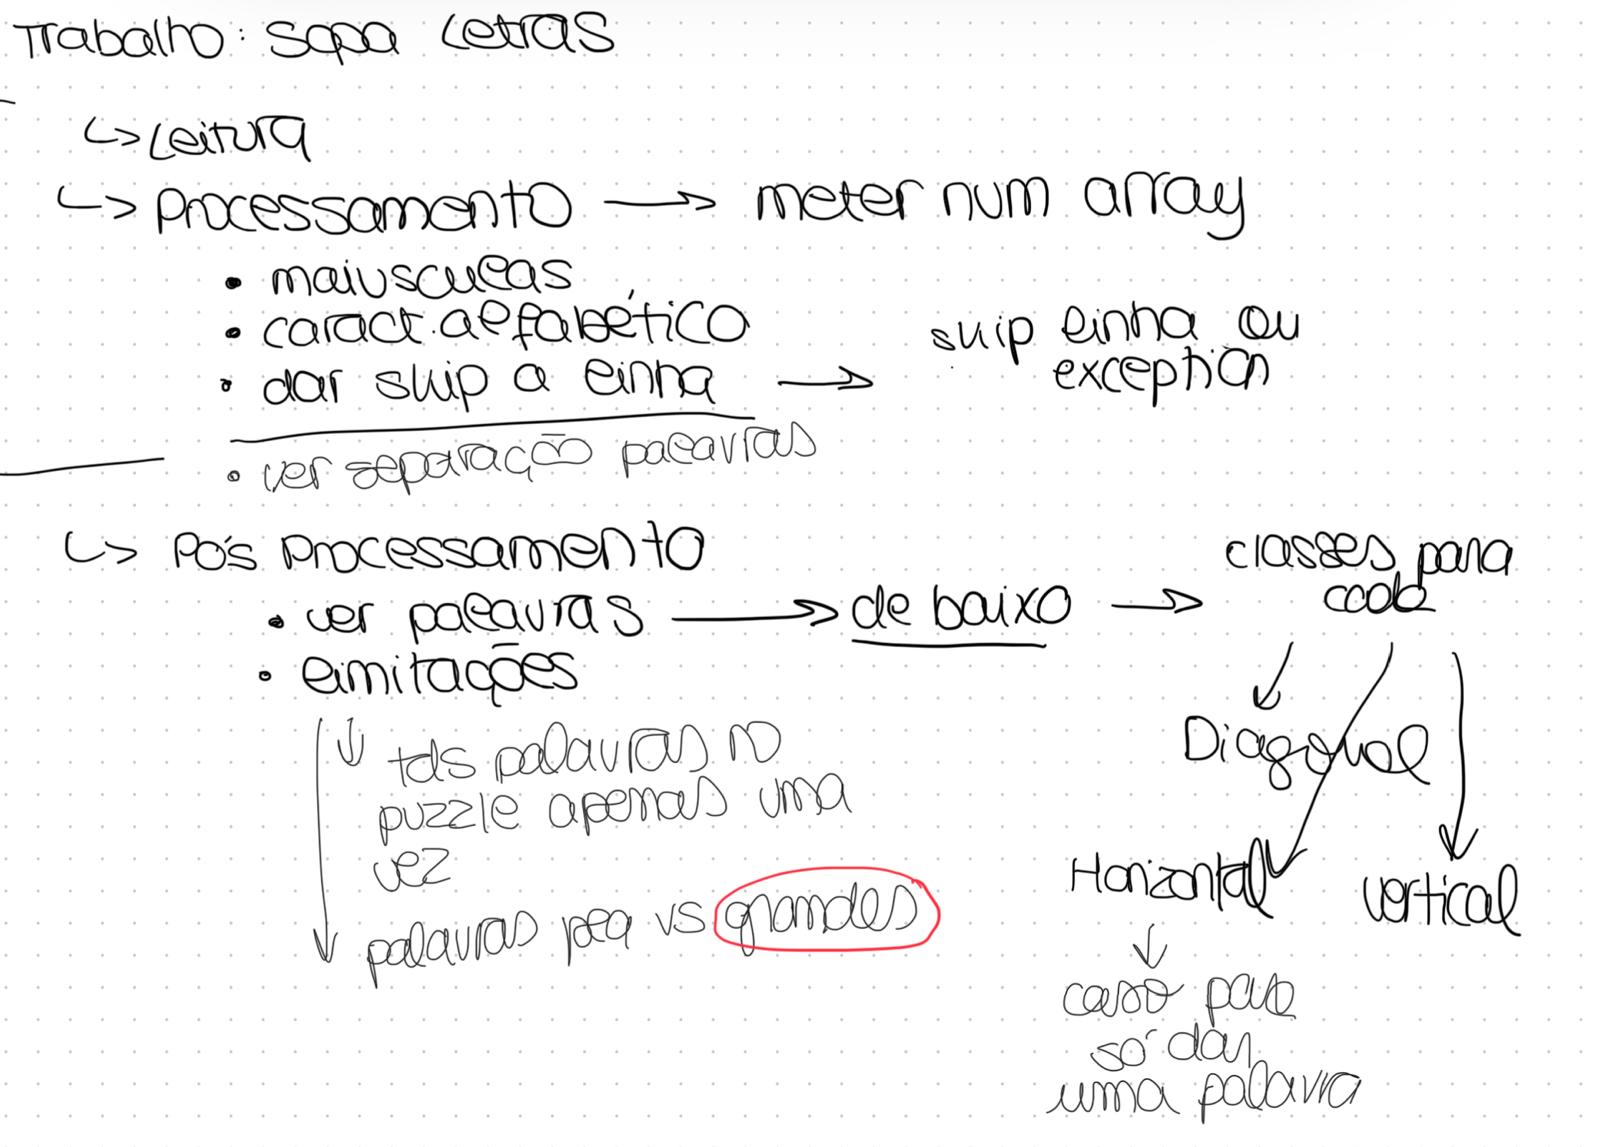 Trabalho: Sopa Letras
↳ Leitura
↳ Processamento → meter num array
• maiusculas
• caract. alfabético
• dar skip a linha → skip linha ou
exception
• ver separação palavras
↳ Pós Processamento
• ver palavras → de baixo → classes para
cada
• limitações
↓ tds palavras no
puzzle apenas uma
vez
palavras peq vs grandes
Diagonal
Horizontal
vertical
↓
caso para
só dar
uma palavra